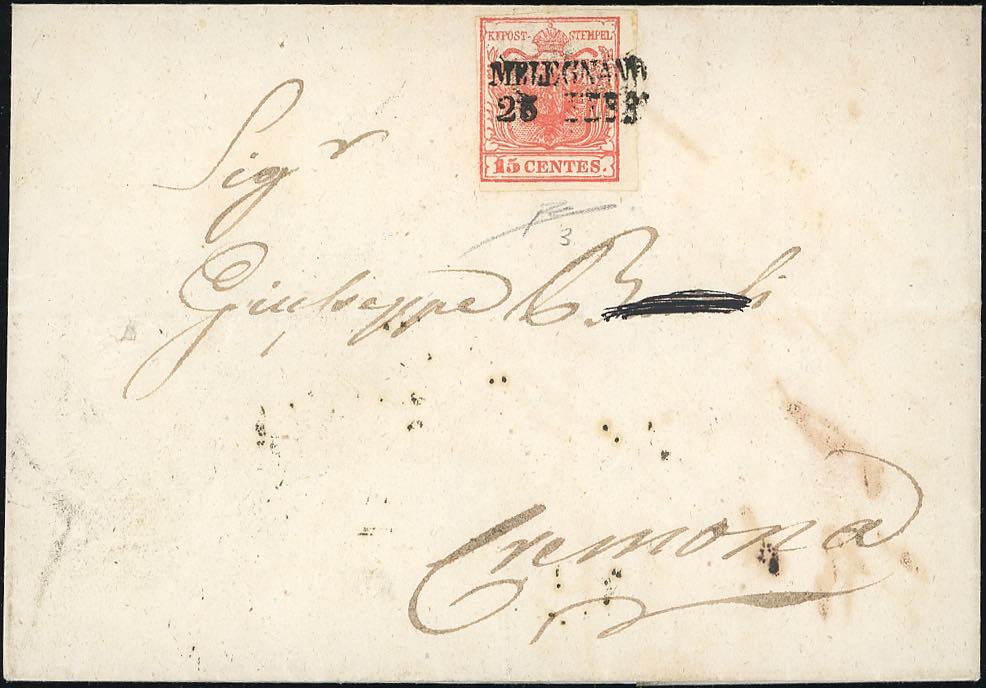 K.K.POST-STEMPEL
MELEGNANO
25 FEBB
15 CENTES.
Sig.r
3
Giuseppe
Cremona